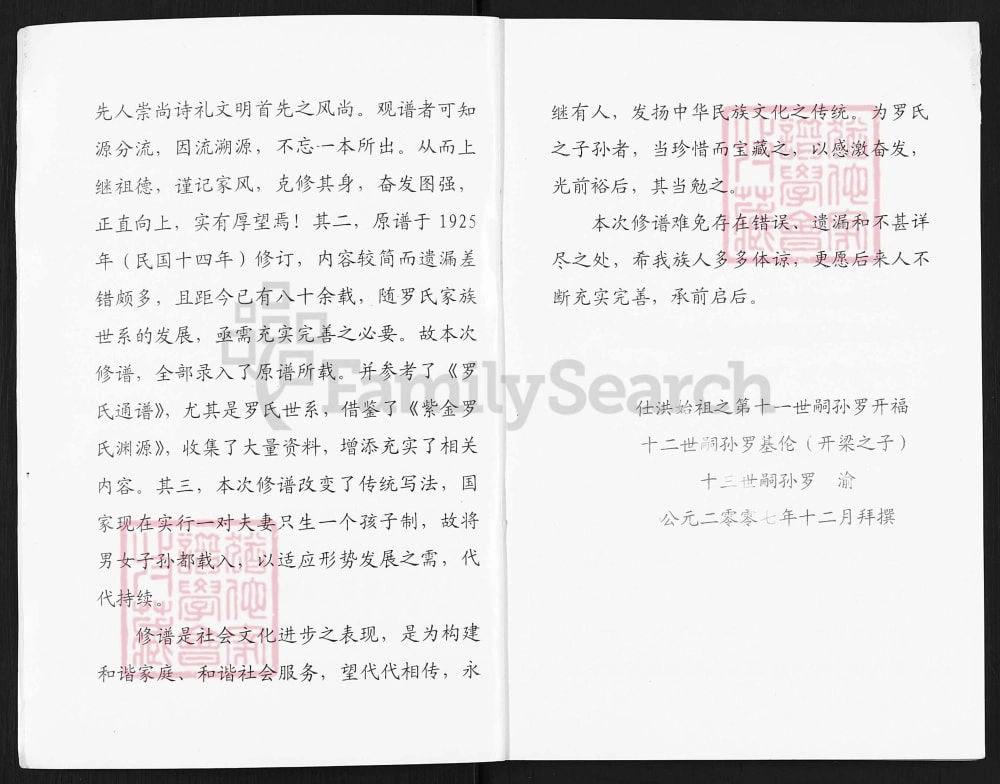 先人崇尚诗礼文明首先之风尚。观谱者可知
源分流，因流溯源，不忘一本所出。从而上
继祖德，谨记家风，克修其身，奋发图强，
正直向上，实有厚望焉！其二，原谱于 1925
年（民国十四年）修订，内容较简而遗漏差
错颇多，且距今已有八十余载，随罗氏家族
世系的发展，亟需充实完善之必要。故本次
修谱，全部录入了原谱所载。并参考了《罗
氏通谱》，尤其是罗氏世系，借鉴了《紫金罗
氏渊源》，收集了大量资料，增添充实了相关
内容。其三，本次修谱改变了传统写法，国
家现在实行一对夫妻只生一个孩子制，故将
男女子孙都载入，以适应形势发展之需，代
代持续。
修谱是社会文化进步之表现，是为构建
和谐家庭、和谐社会服务，望代代相传，永
继有人，发扬中华民族文化之传统。为罗氏
之子孙者，当珍惜而宝藏之，以感激奋发，
光前裕后，其当勉之。
本次修谱难免存在错误、遗漏和不甚详
尽之处，希我族人多多体谅，更愿后来人不
断充实完善，承前启后。
仕洪始祖之第十一世嗣孙罗开福
十二世嗣孙罗基伦（开梁之子）
十三世嗣孙罗 渝
公元二零零七年十二月拜撰
FamilySearch